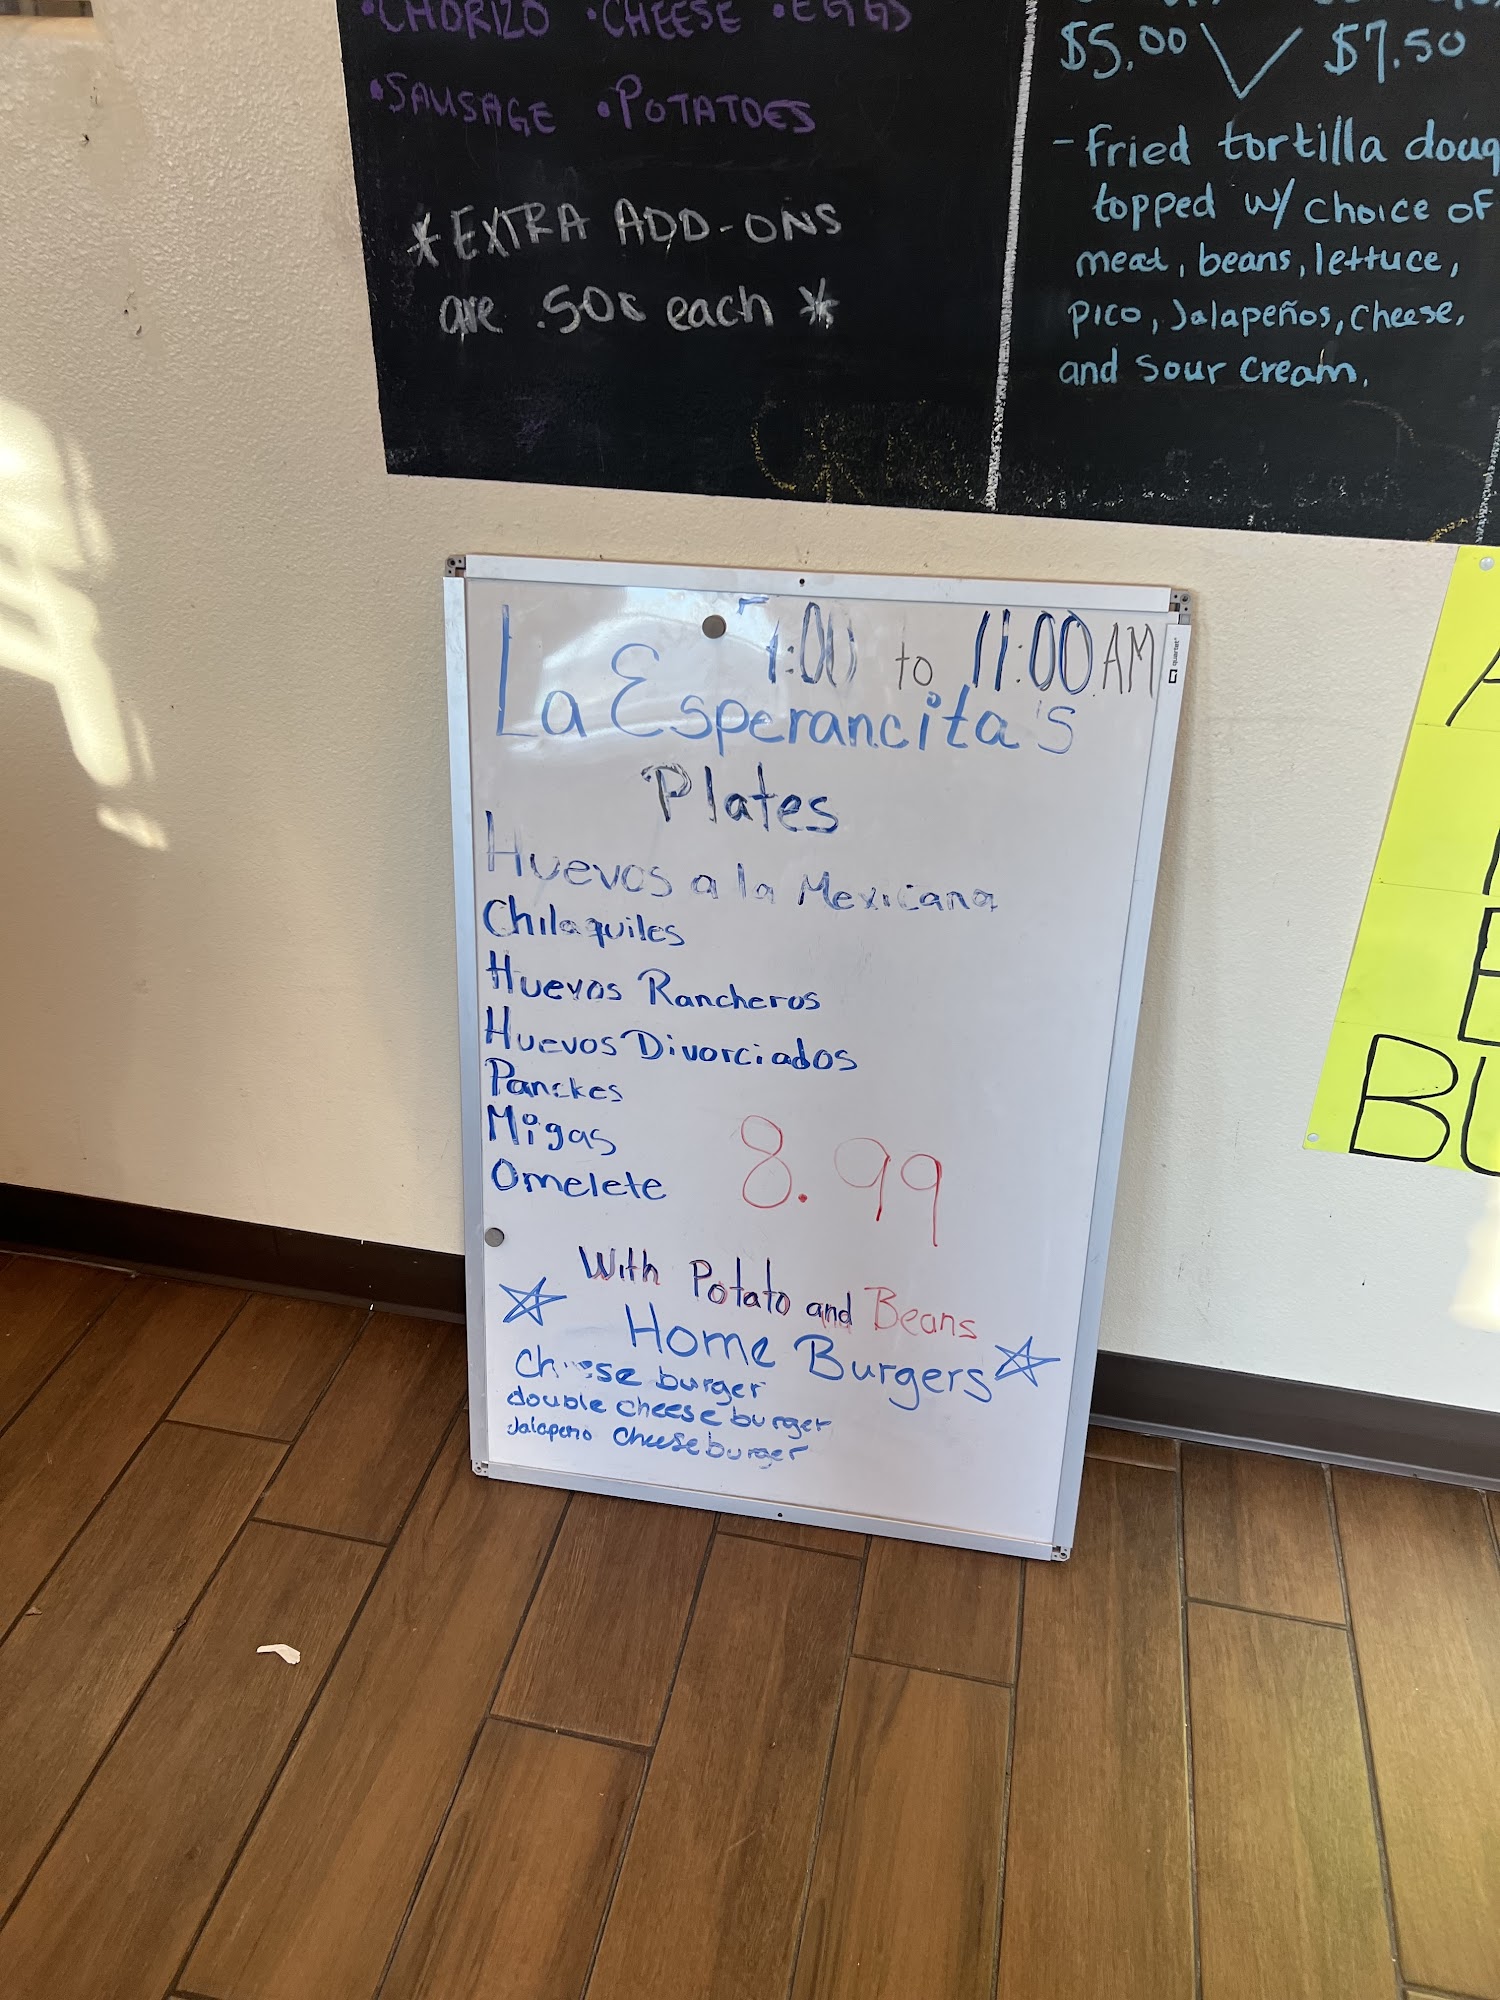 •CHORIZO •CHEESE •EGGS
•SAUSAGE •POTATOES
*EXTRA ADD-ONS
are .50¢ each *
$5.00 $7.50
- Fried tortilla doug
topped w/ choice of
meat, beans, lettuce,
pico, Jalapeños, cheese,
and sour cream.
7:00 to 11:00 AM
La Esperancita's
Plates
Huevos a la Mexicana
Chilaquiles
Huevos Rancheros
Huevos Divorciados
Panckes
Migas
Omelete 8.99
With Potato and Beans
Home Burgers
Cheese burger
double cheese burger
Jalapeno cheese burger
BU